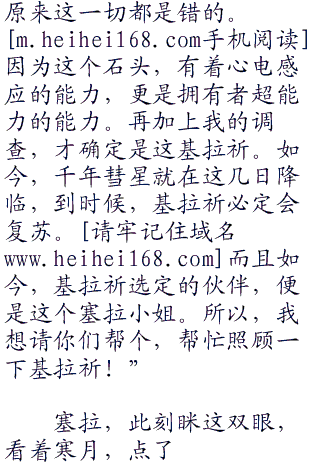 原来这一切都是错的。
[m.heihei168.com手机阅读]
因为这个石头，有着心电感
应的能力，更是拥有者超能
力的能力。再加上我的调
查，才确定是这基拉祈。如
今，千年彗星就在这几日降
临，到时候，基拉祈必定会
复苏。[请牢记住域名
www.heihei168.com]而且如
今，基拉祈选定的伙伴，便
是这个塞拉小姐。所以，我
想请你们帮个，帮忙照顾一
下基拉祈！”
塞拉，此刻眯这双眼，
看着寒月，点了